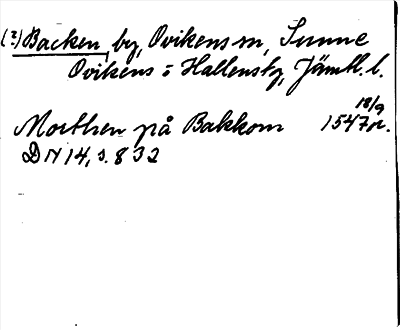 (?) Backen, by, Ovikens sn, Sunne
Ovikens o Hallenstg, Jämtl. l.
18/9
Morthen på Bakkom 1547 n.
DN 14, s. 832